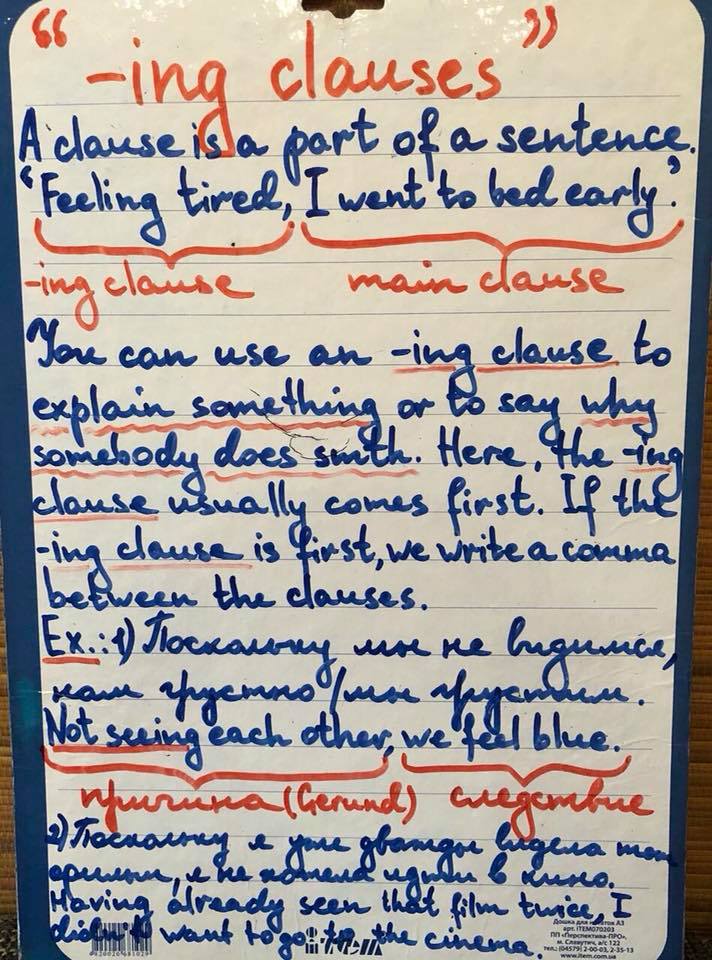 “ -ing clauses ”
A clause is a part of a sentence.
“Feeling tired, I went to bed early.”
-ing clause main clause
You can use an -ing clause to
explain something or to say why
somebody does smth. Here, the -ing
clause usually comes first. If the
-ing clause is first, we write a comma
between the clauses.
Ex.: 1) Поскольку мы не видимся,
нам грустно / мы грустим.
Not seeing each other, we feel blue.
причина (Gerund) следствие
2) Поскольку я уже дважды видела тот
фильм, я не хотела идти в кино.
Having already seen that film twice, I
didn't want to go to the cinema.
Дошка для нотаток А3
арт. ITEM070203
ПП «Перспектива-ПРО»,
м. Славутич, а/с 122
тел.: (04579) 2-00-03, 2-35-13
www.item.com.ua